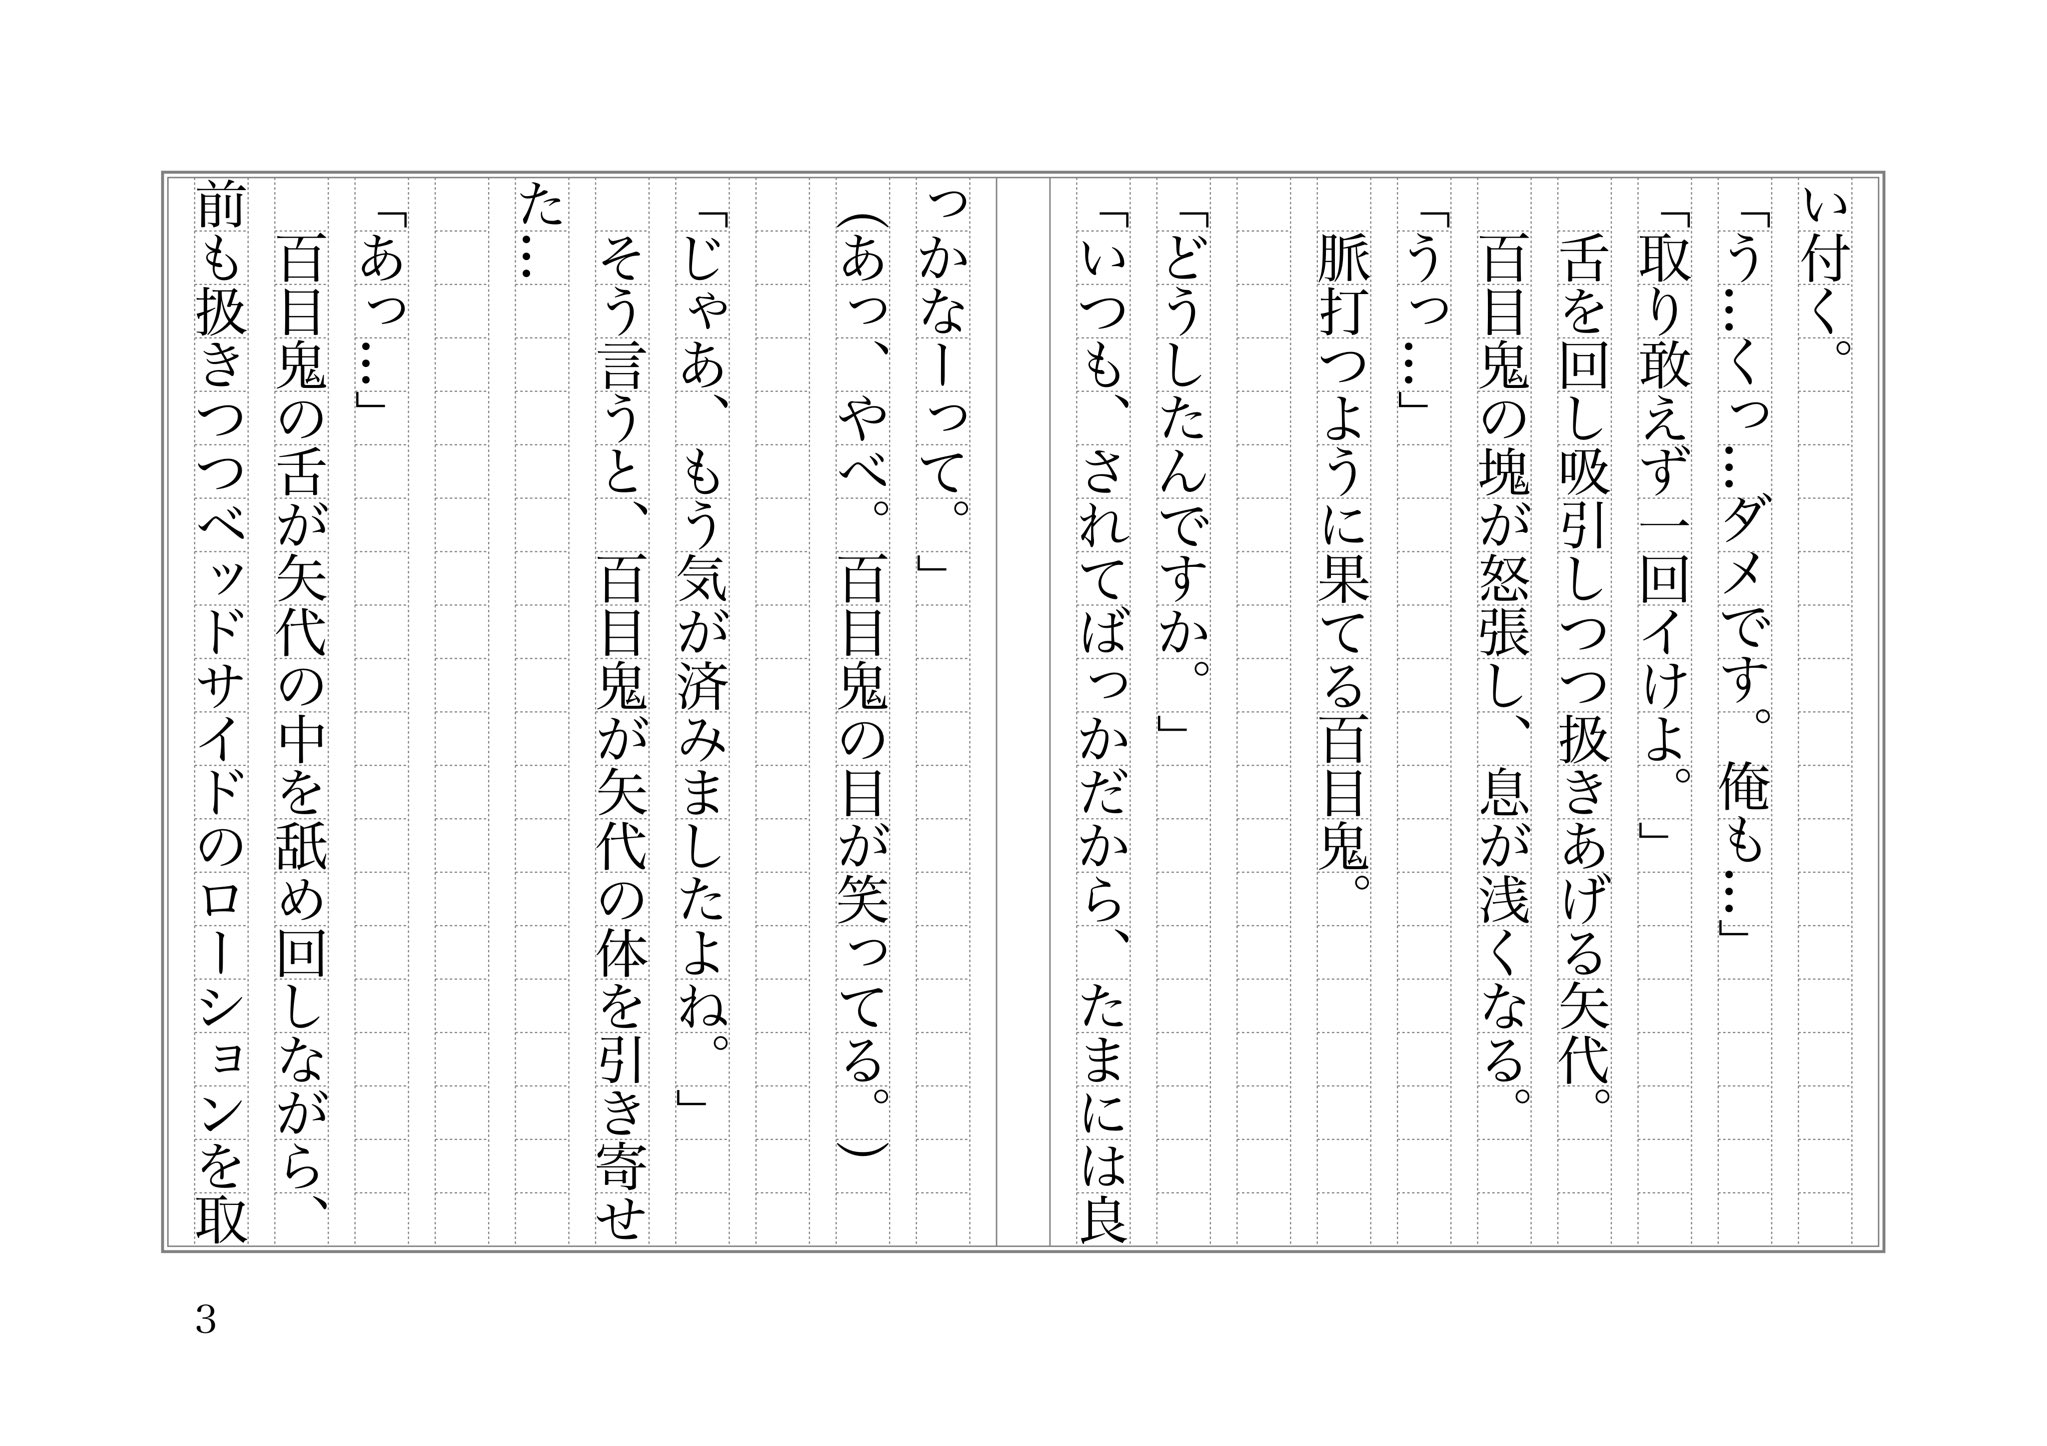 い付く。
「う…くっ…ダメです。俺も…」
「取り敢えず一回イけよ。」
舌を回し吸引しつつ扱きあげる矢代。
百目鬼の塊が怒張し、息が浅くなる。
「うっ…」
脈打つように果てる百目鬼。
「どうしたんですか。」
「いつも、されてばっかだから、たまには良
っかなーって。」
（あっ、やべ。百目鬼の目が笑ってる。）
「じゃあ、もう気が済みましたよね。」
そう言うと、百目鬼が矢代の体を引き寄せ
た…
「あっ…」
百目鬼の舌が矢代の中を舐め回しながら、
前も扱きつつベッドサイドのローションを取
3